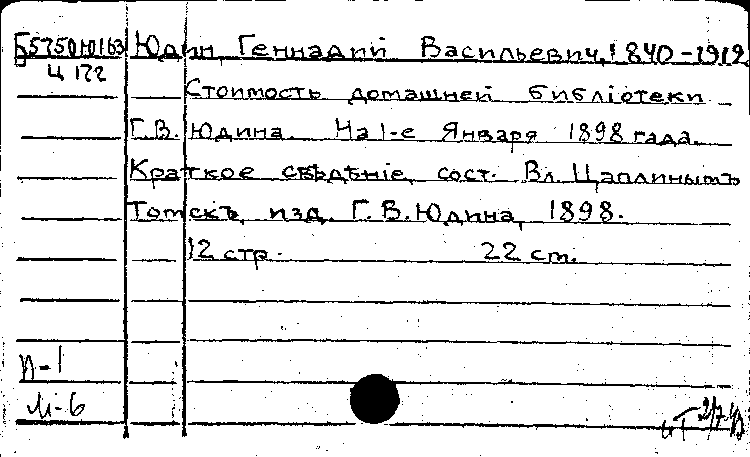 Б5750Ю163 Юдин, Геннадий Васильевич, 1840-1912.
Ц 172
Стоимость домашней библіотеки
Г.В. Юдина. На 1-е Января 1898 гада.
Краткое свѣдѣніе, сост. Вл. Цаплинымъ
Томскъ, изд. Г.В. Юдина, 1898.
12 стр. 22 cm.
п-1
м-6